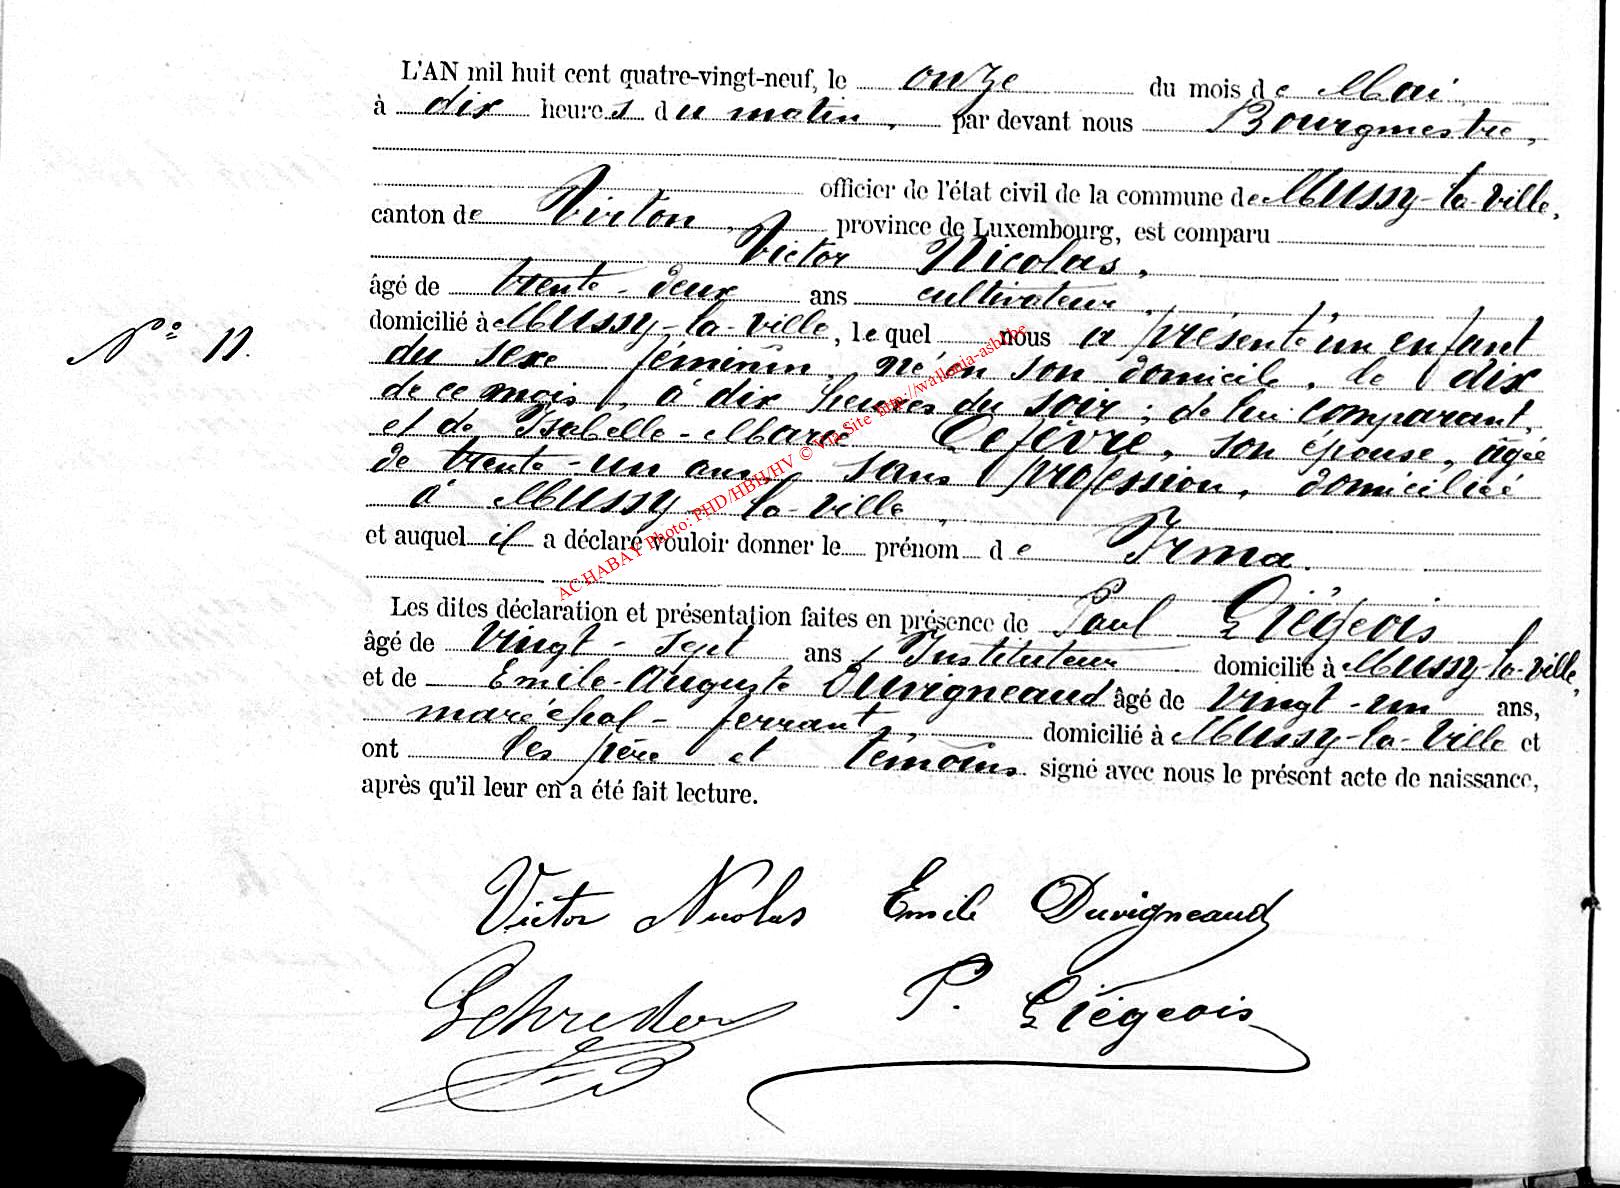 L'AN mil huit cent quatre-vingt-neuf, le onze du mois de Mai
à dix heures du matin, par devant nous Bourgmestre,
officier de l'état civil de la commune de Mussy-la-Ville,
canton de Virton, province de Luxembourg, est comparu
Victor Nicolas,
âgé de trente-deux ans cultivateur,
domicilié à Mussy-la-ville, lequel nous a présenté un enfant
N° 11.
du sexe féminin, né en son domicile, le dix
de ce mois, à dix heures du soir; de lui comparant,
et de Isabelle-Marie Lefèvre, son épouse, âgée
de trente-un ans, sans profession, domiciliée
à Mussy-la-ville,
et auquel il a déclaré vouloir donner le prénom de Irma.
Les dites déclaration et présentation faites en présence de Paul Liégeois
âgé de vingt-sept ans, Instituteur domicilié à Mussy-la-ville,
et de Emile-Auguste Duvigneaud âgé de vingt-un ans,
maréchal-ferrant, domicilié à Mussy-la-Ville et
ont les père et témoins signé avec nous le présent acte de naissance,
après qu'il leur en a été fait lecture.
Victor Nicolas Emile Duvigneaud
Schreder P. Liégeois
AC HABAY Photo: PHD/HBH/HV © Via Site http://wallonia-asbl.be